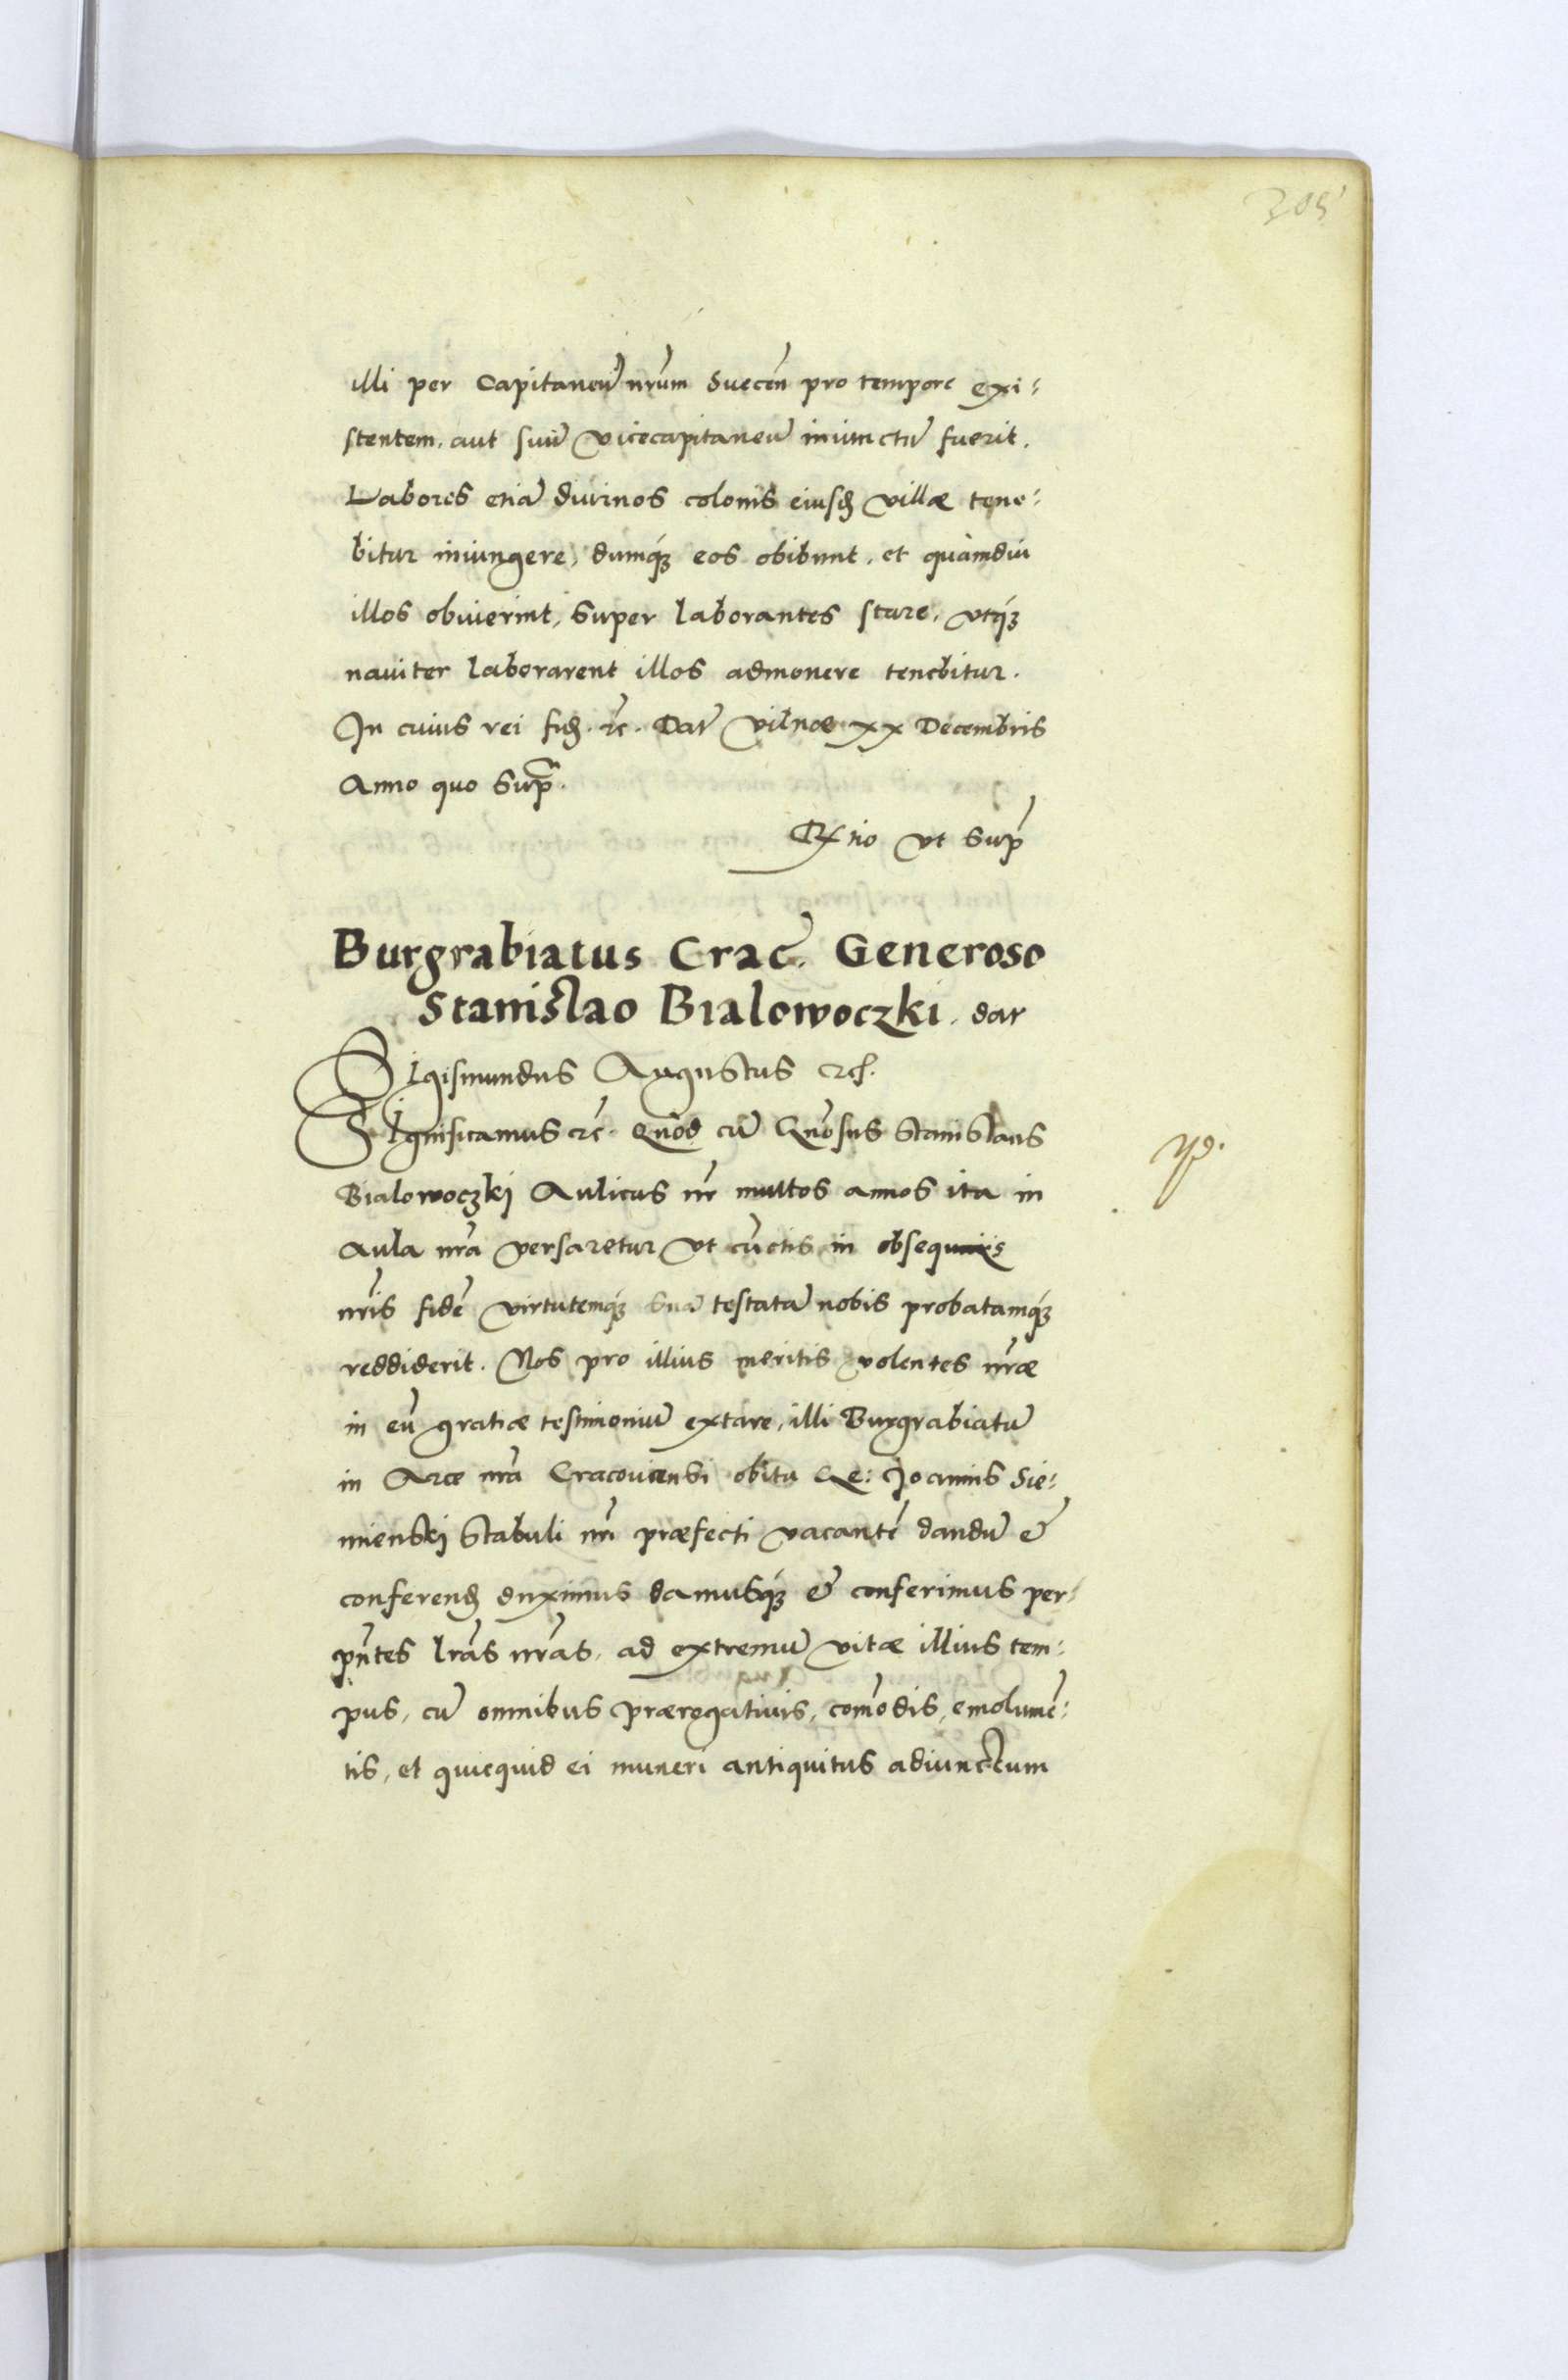 305
illi per Capitaneũ nr̃um Suecen̄ pro tempore exi:
stentem, aut suũ vicecapitaneũ iniunctũ fuerit.
Labores etiã diurnos colonis eiusđ villæ tene:
bitur iniungere, dumq́ꝫ eos obibunt, et quàmdiu
illos obiuerint, super laborantes stare, vtq́ꝫ
nauiter laborarent illos admonere tenebitur.
In cuius rei fiđ. ꝛc̃. Dat̃ Vilnæ xx Decembris
Anno quo supª.
Rx̃tio vt sup̃
Burgrabiatus Crac̃. Generoso
Stanislao Bialowoczki. dat
Sigismundus Augustus ꝛc̃.
Significamus ꝛc̃. Quòd cũ Gnõsus Stanislaus
Bialowoczkj Aulicus nr̃ multos annos ita in
Aula nr̃a versaretur vt cũctis in obsequiis
nr̃is fidẽ virtutemq́ꝫ suã testatã nobis probatamq́ꝫ
reddiderit. Nos pro illius meritis volentes nr̃æ
in eũ gratiæ testimoniũ extare, illi Burgrabiatũ
in Arce nr̃a Cracouiensi obitu Ge: Joannis Sie:
mienskj Stabuli nr̃i præfecti vacantẽ dandũ &
conferenđ duximus damusq́ꝫ & conferimus per
pñtes lr̃as nr̃as, ad extremũ vitæ illius tem:
pus, cũ omnibus prærogatiuis, com̃odis, emolumẽ:
tis, et quicquid ei muneri antiquitus adiunctum